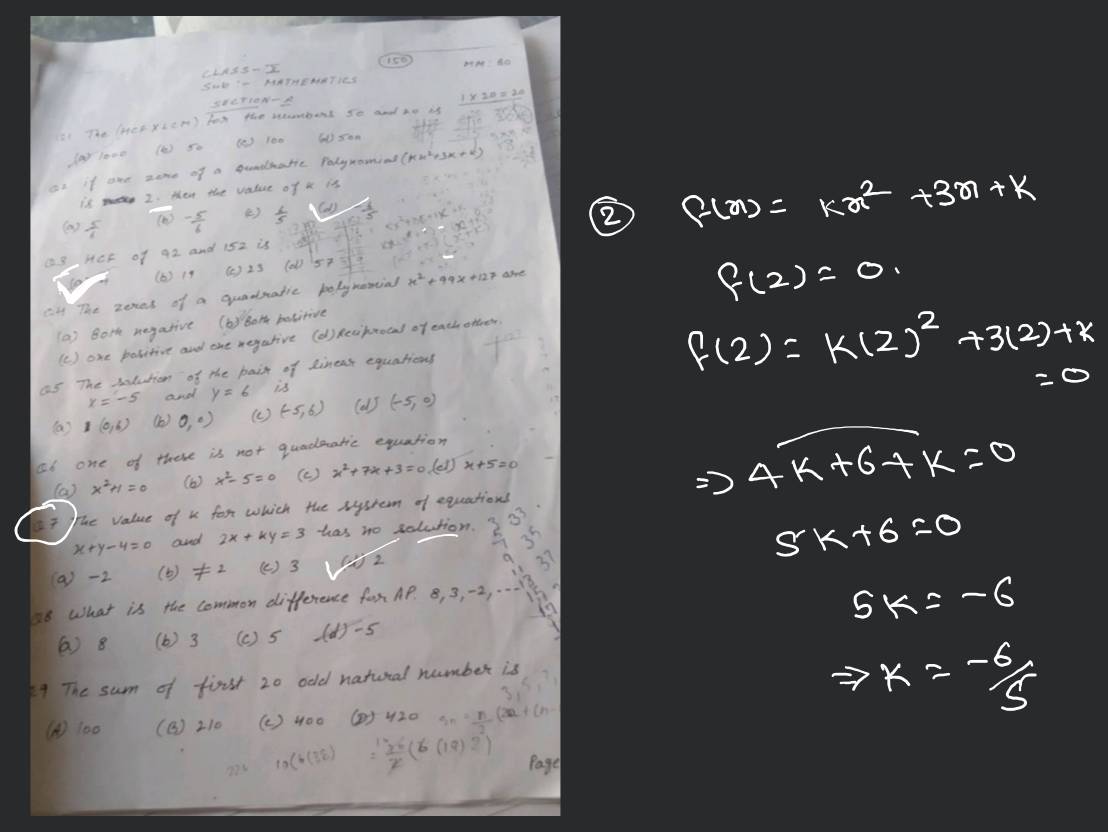 CLASS-X
(150)
MM: 80
Sub :- MATHEMATICS
SECTION-A
1 X 20 = 20
Q1 The (HCF X LCM) for the numbers 50 and 20 is
(a) 1000 (b) 50 (c) 100 (d) 500
Q2 if one zero of a quadratic Polynomial (Kx²+3x+K)
is 2. then the value of K is
(a) 5/6 (b) -5/6 (c) 6/5 (d) -6/5
Q3 HCF of 92 and 152 is
(a) 4 (b) 19 (c) 23 (d) 57
Q4 The zeros of a quadratic polynomial x²+99x+127 are
(a) Both negative (b) Both positive
(c) one positive and one negative (d) Reciprocal of each other.
Q5 The solution of the pair of linear equations
x = -5 and y = 6 is
(a) (0,6) (b) 0,0) (c) (-5,6) (d) (-5,0)
Q6 one of these is not quadratic equation
(a) x²+1=0 (b) x²-5=0 (c) x²+7x+3=0 (d) x+5=0
Q7 The value of K for which the system of equations
x+y-4=0 and 2x+ky=3 has no solution.
(a) -2 (b) ≠2 (c) 3 (d) 2
Q8 What is the common difference for AP. 8, 3, -2, ----
(a) 8 (b) 3 (c) 5 (d) -5
Q9 The sum of first 20 odd natural number is
(A) 100 (B) 210 (c) 400 (D) 420
Page
② f(x) = Kx² +3x + K
f(2) = 0.
f(2) = K(2)² +3(2)+K
= 0
=> 4K+6+K=0
5K+6=0
5K = -6
=> K = -6/5